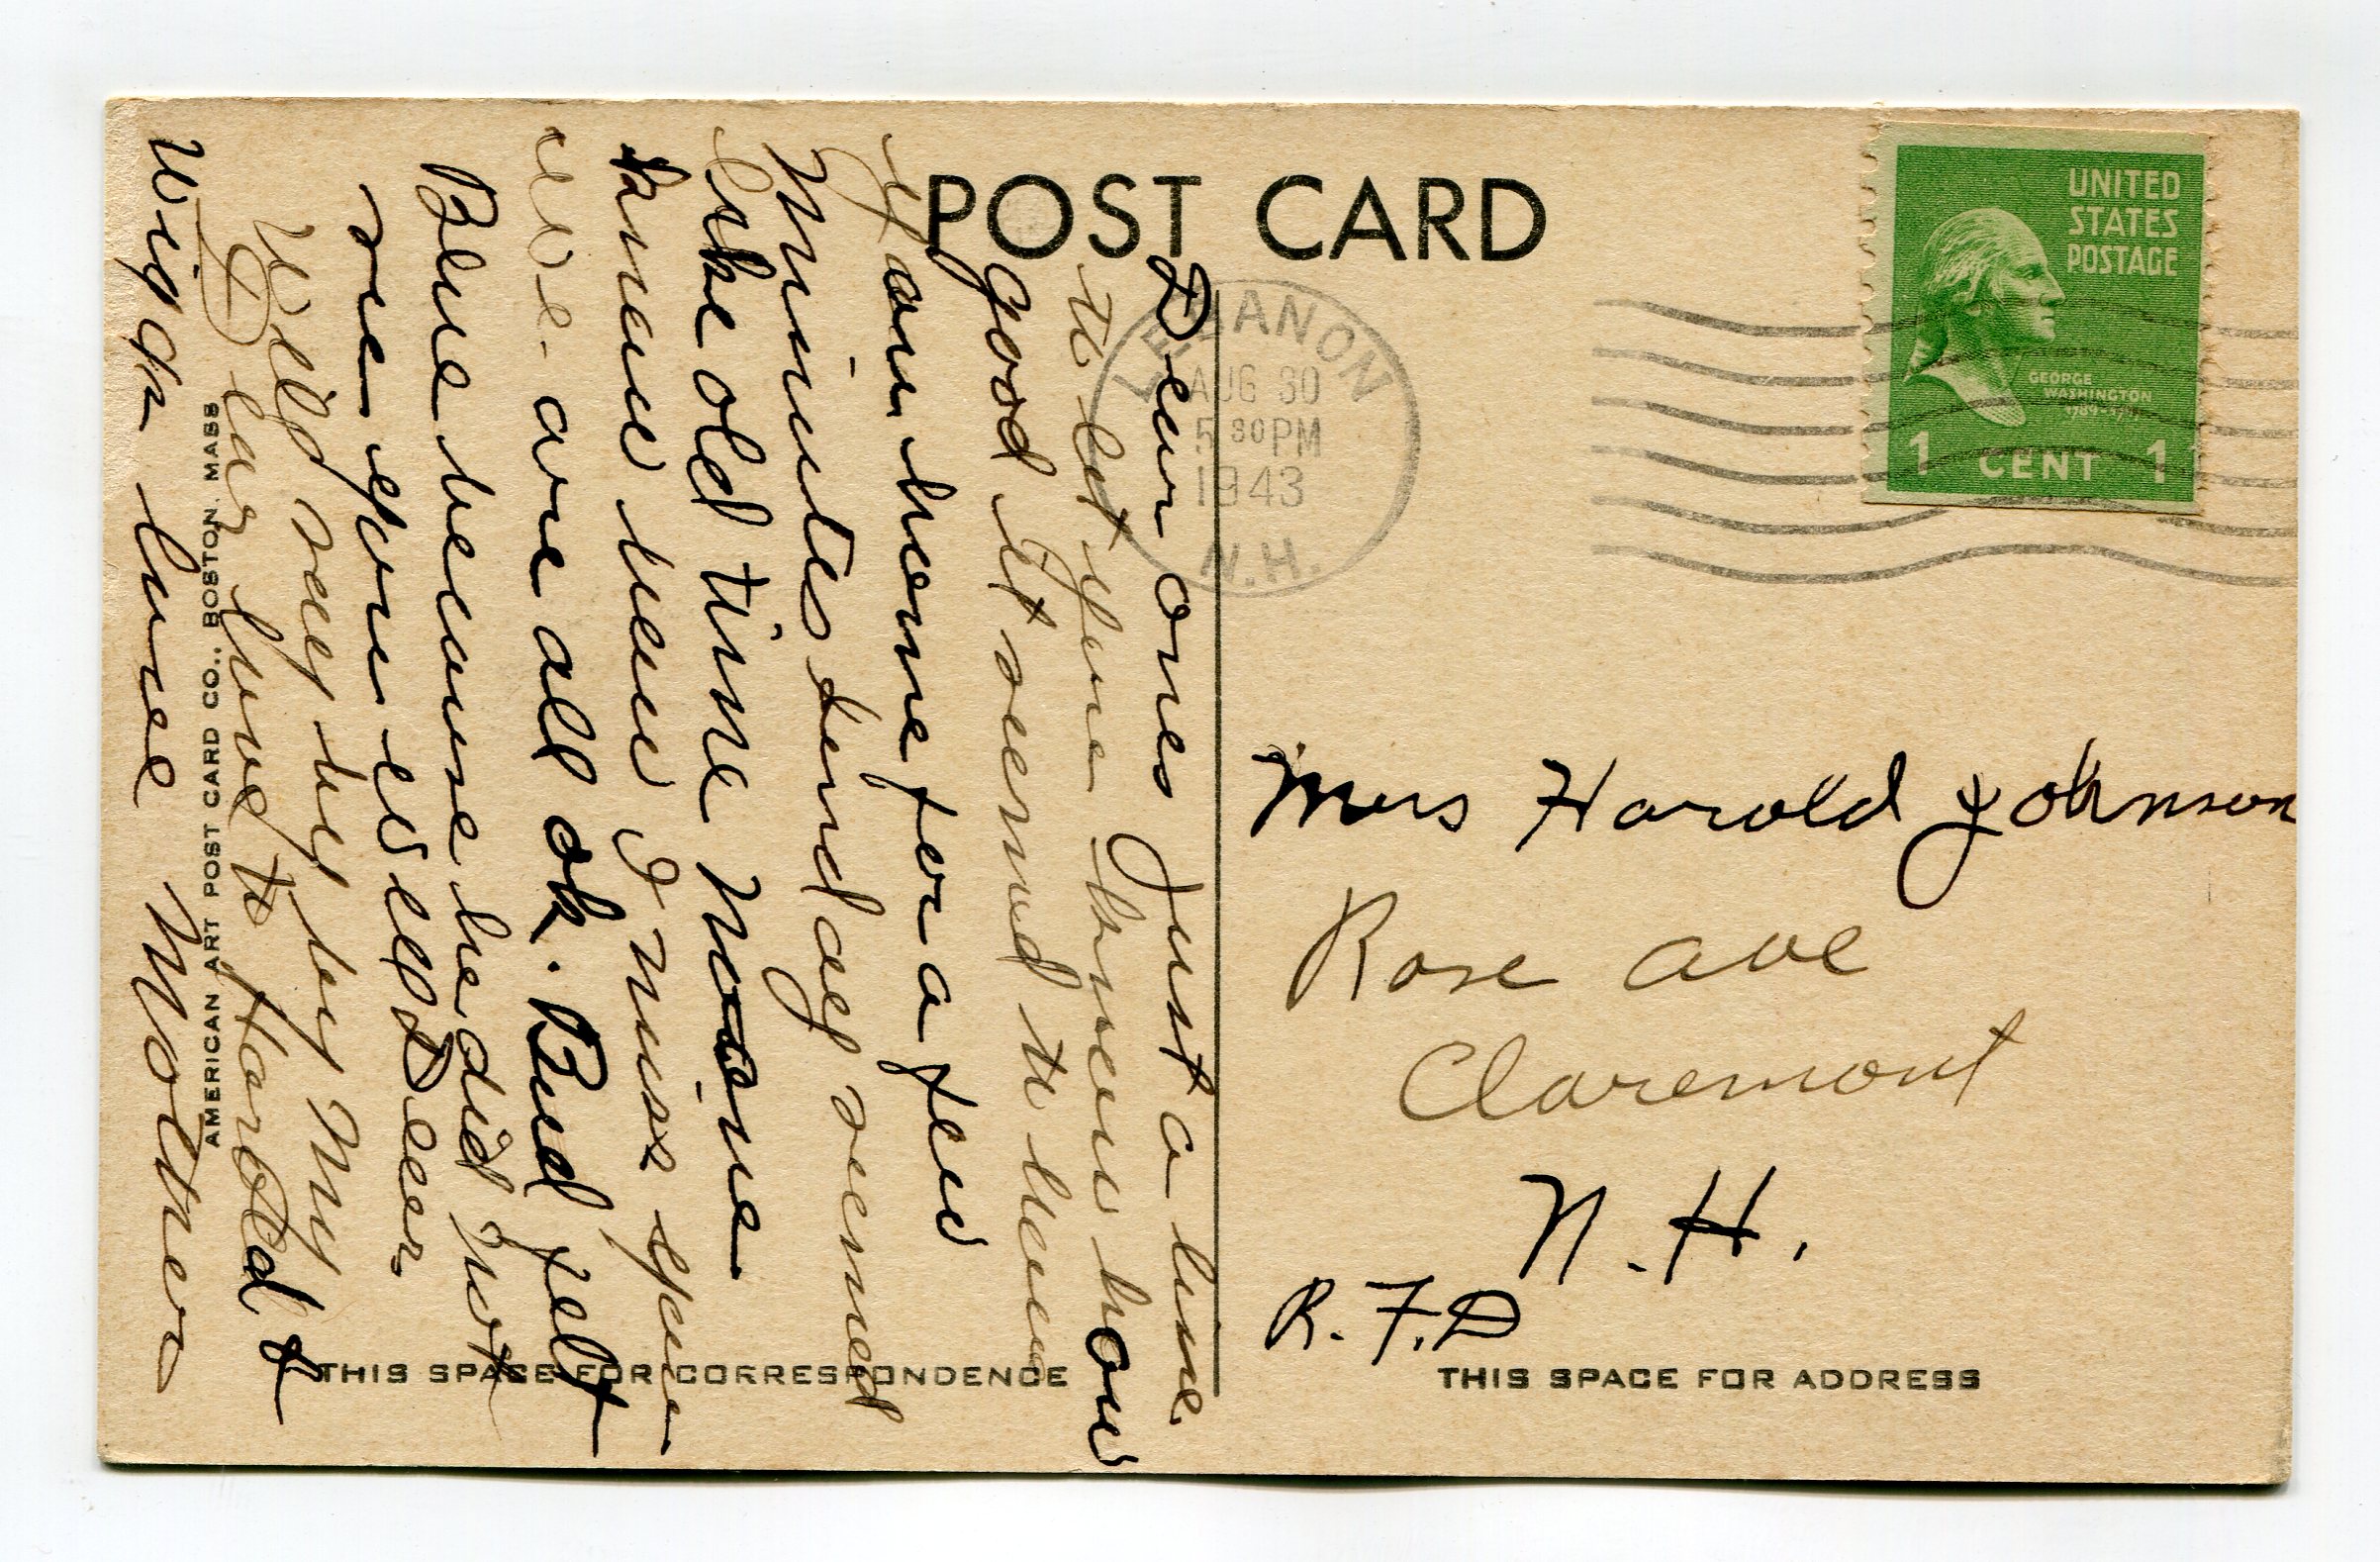 POST CARD
UNITED
STATES
POSTAGE
GEORGE
WASHINGTON
1 CENT 1
LEBANON
AUG 30
5 30 PM
1943
N.H.
Dear ones Just a line
to let you know how
good it seemed to have
you home for a few
minutes Sunday seemed
like old time none
knew how I miss you
we are all ok. Bud felt
Blue because he did not
see you as well Deer
Will say by by My
Dear love to Harold &
Wigch love Mother
Mrs Harold Johnson
Rose ave
Claremont
N.H.
R.F.D
THIS SPACE FOR CORRESPONDENCE
THIS SPACE FOR ADDRESS
AMERICAN ART POST CARD CO., BOSTON, MASS